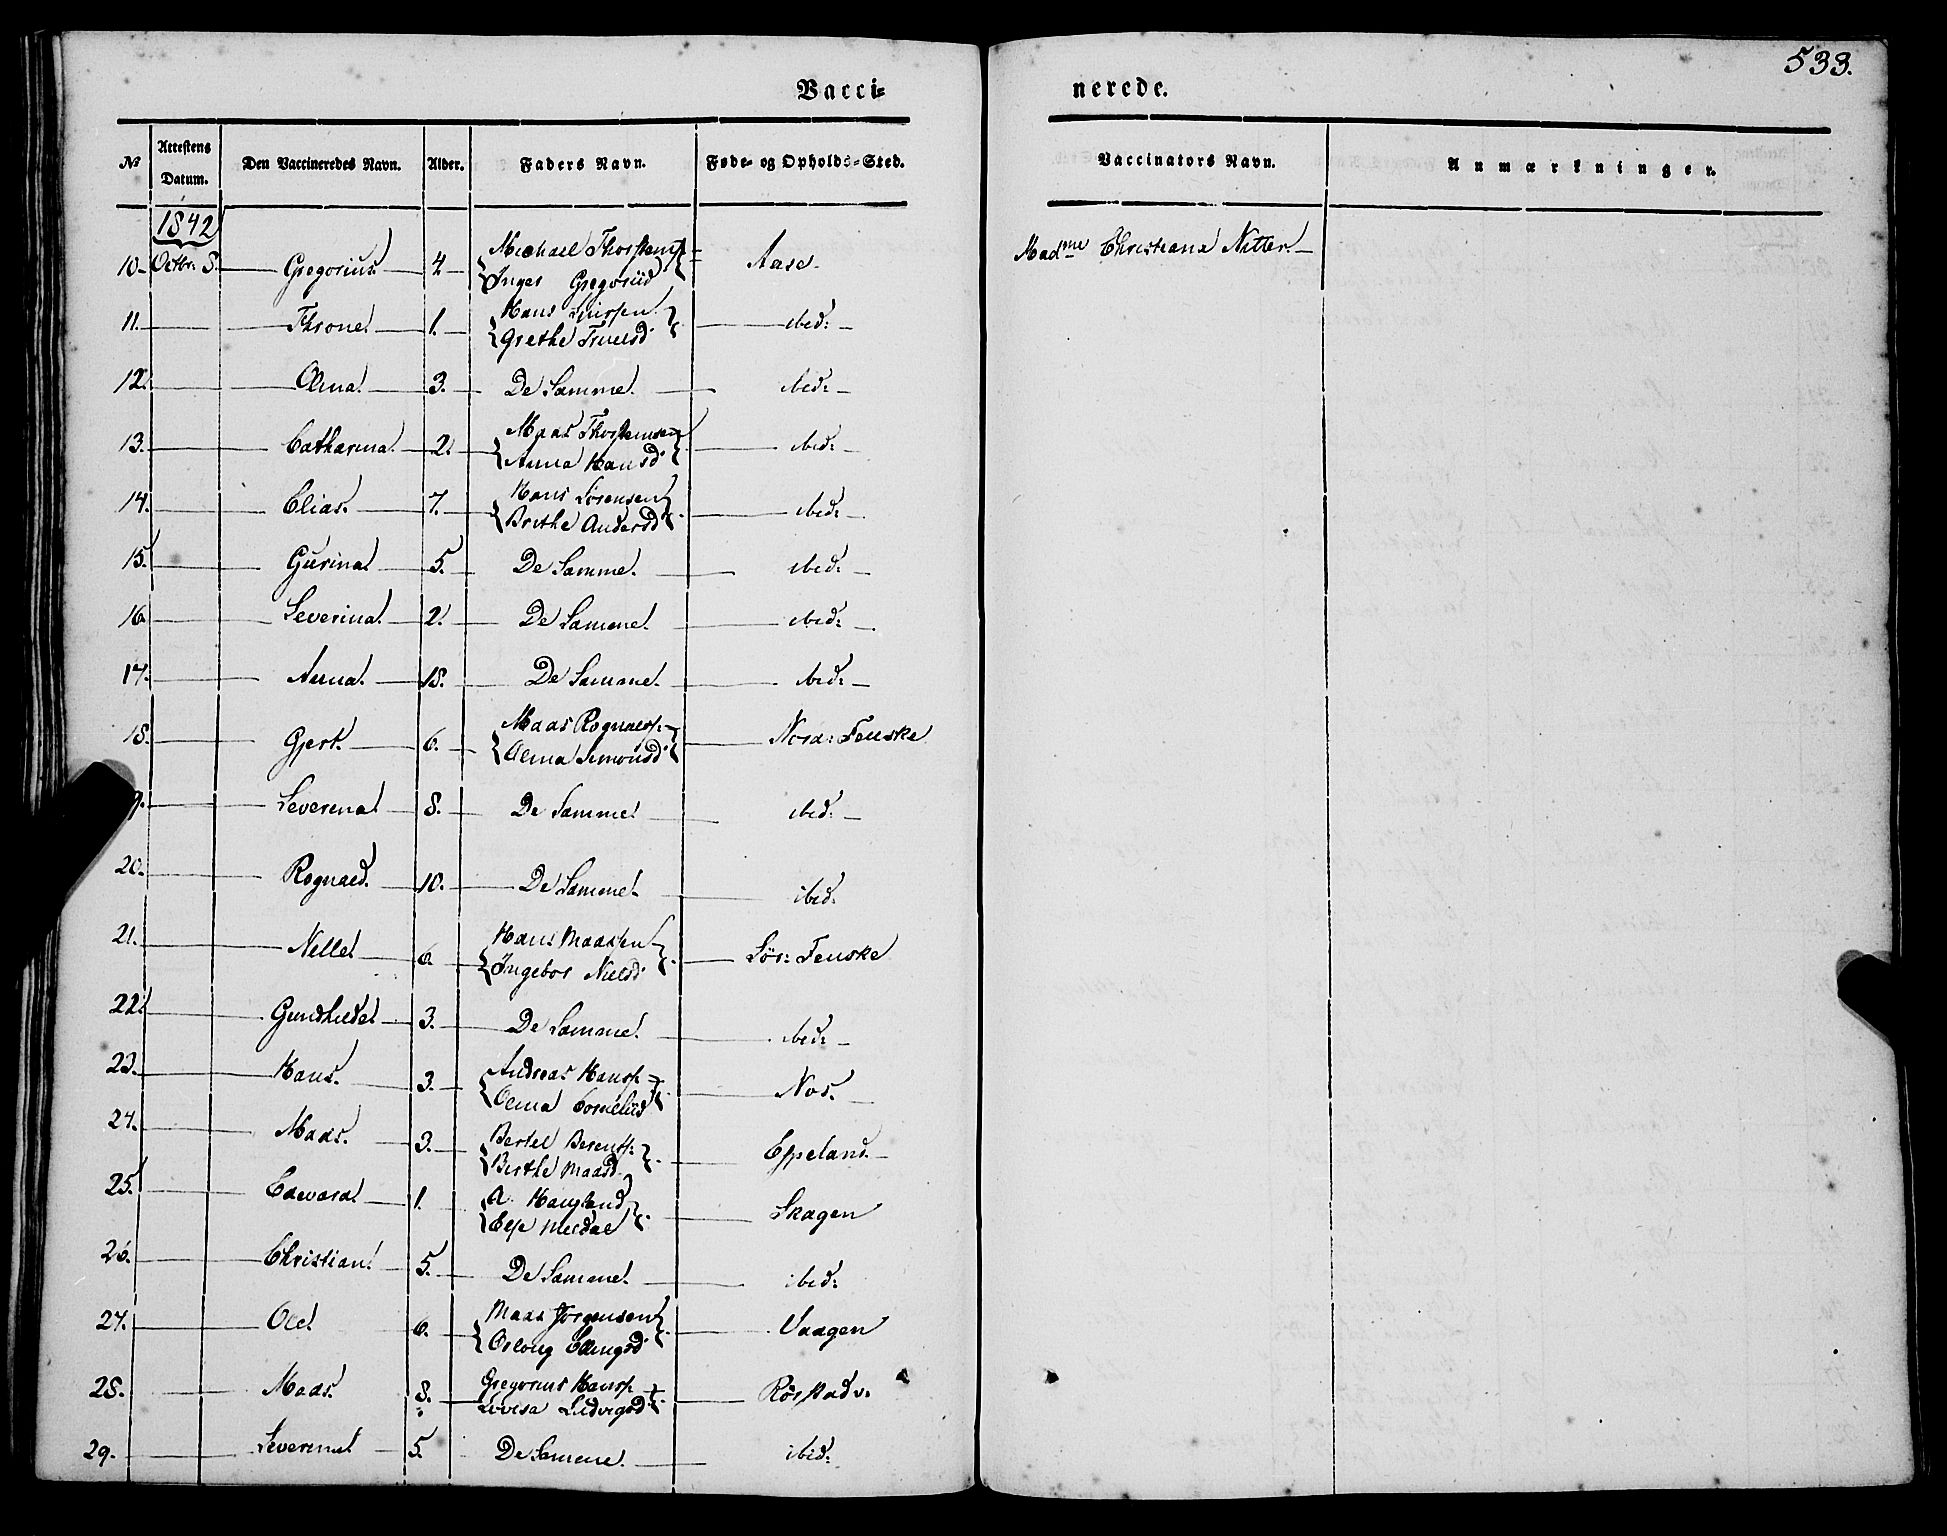 533.
Vacci=
nerede.
No Attestens Datum. Den Vaccineredes Navn. Alder. Faders Navn. Føde- og Opholds-Sted. Vaccinators Navn. Anmærkninger.
1842
10. Octbr: 8. Gregorius. 4 Michael Thorstens: Inger Gregoriid Aase. Madme Christiana Nitter
11. Throne 1. Hans Grethe Truelsd ibid:
12. Olina 3. De Samme. ibid:
13. Catharina 2. Maas Thorstensen Anna Hansd ibid:
14. Elias. 7. Hans Sørensen Brithe Andersd ibid:
15. Gurina 5. De Samme. ibid:
16 Severina. 2. De Samme. ibid:
17. Anna. 18. De Samme. ibid:
18. Gjert. 6. Maas Rognaldsp. Olina Simonsd Nord: Fenske
9. Severina 8. De Samme ibid:
20. Rognald. 10. De Samme ibid:
21. Nille 6. Hans Maassen Ingebor Nielsd Sør: Fenske
22. Gundhilde 3. De Samme. ibid:
23. Hans. 3. Andreas Hansp. Olina Corneliid Nos.
24. Maas. 3. Bertel Berentsp: Birthe Maasd. Eppeland.
25. Edvard 1. A. Haugland Else Meldal Skagen
26. Christian 5. De Samme. ibid:
27. Ole 6. Maas Jørgensen Oslaug Ellingsd Vaagen
28. Maas. 8. Gregorius Hansp. Lovisa Ludvigsd Rørstadv:
29. Severina 5. De Samme. ibid: